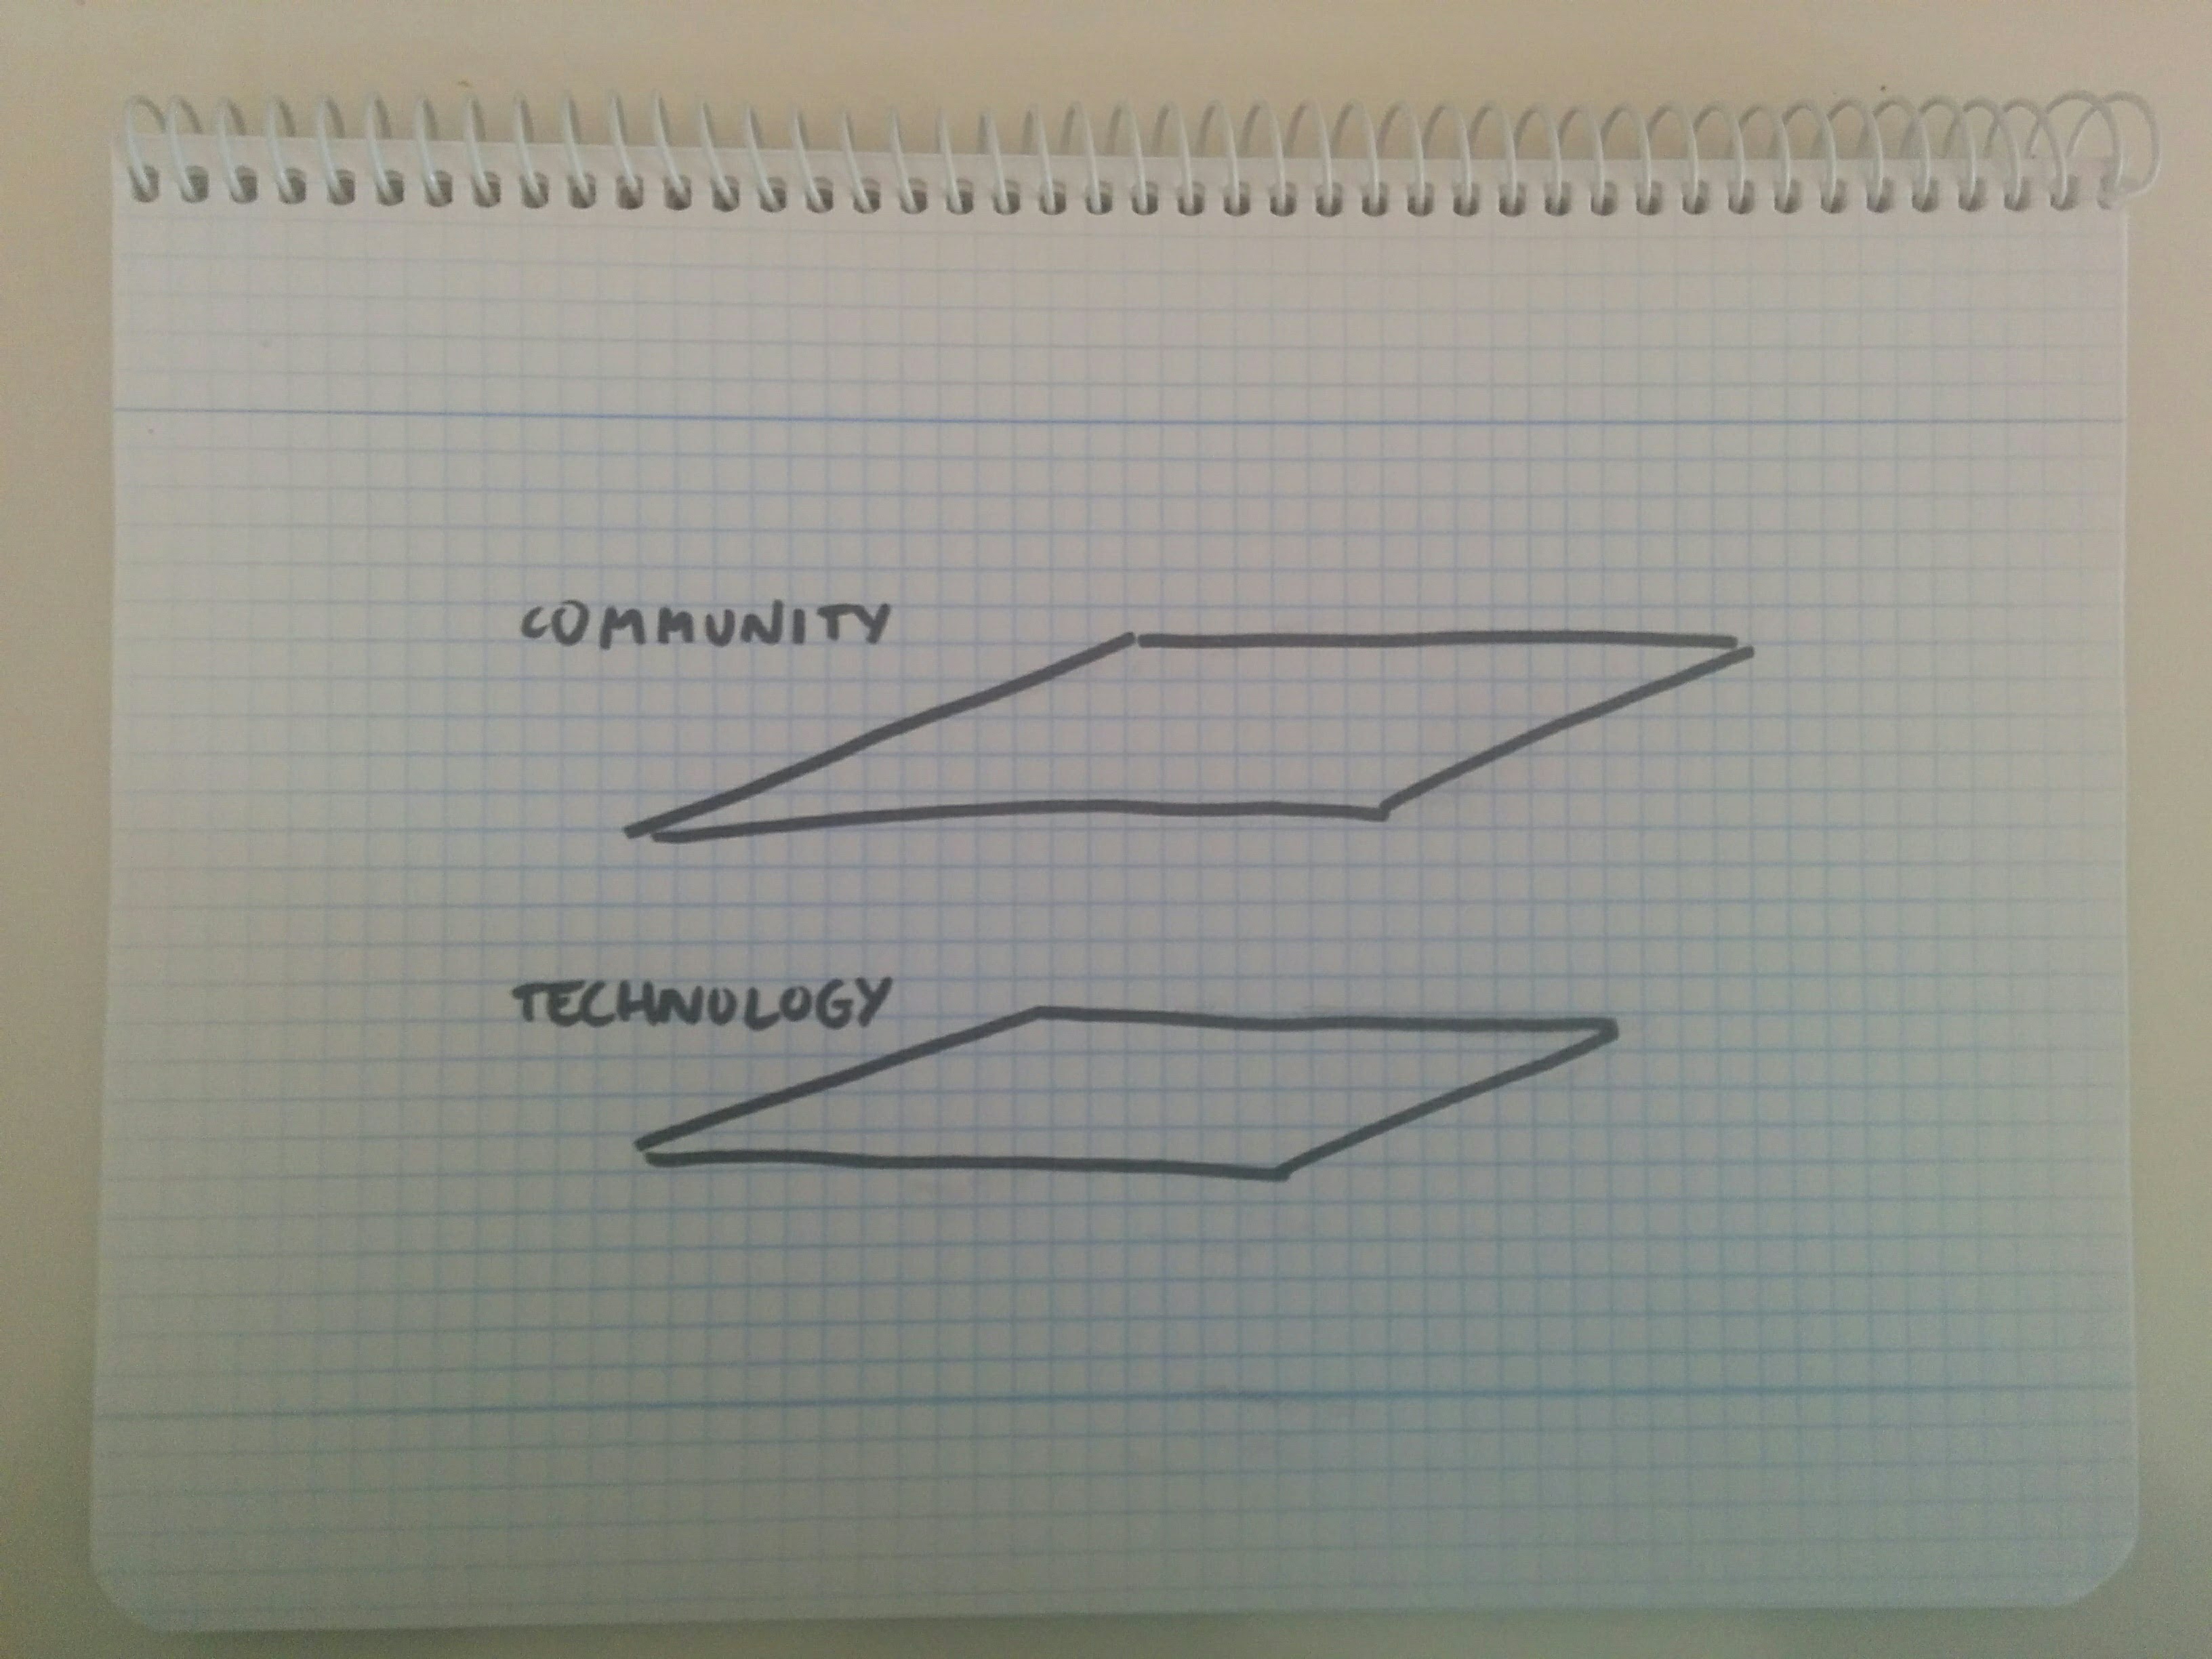 COMMUNITY
TECHNOLOGY